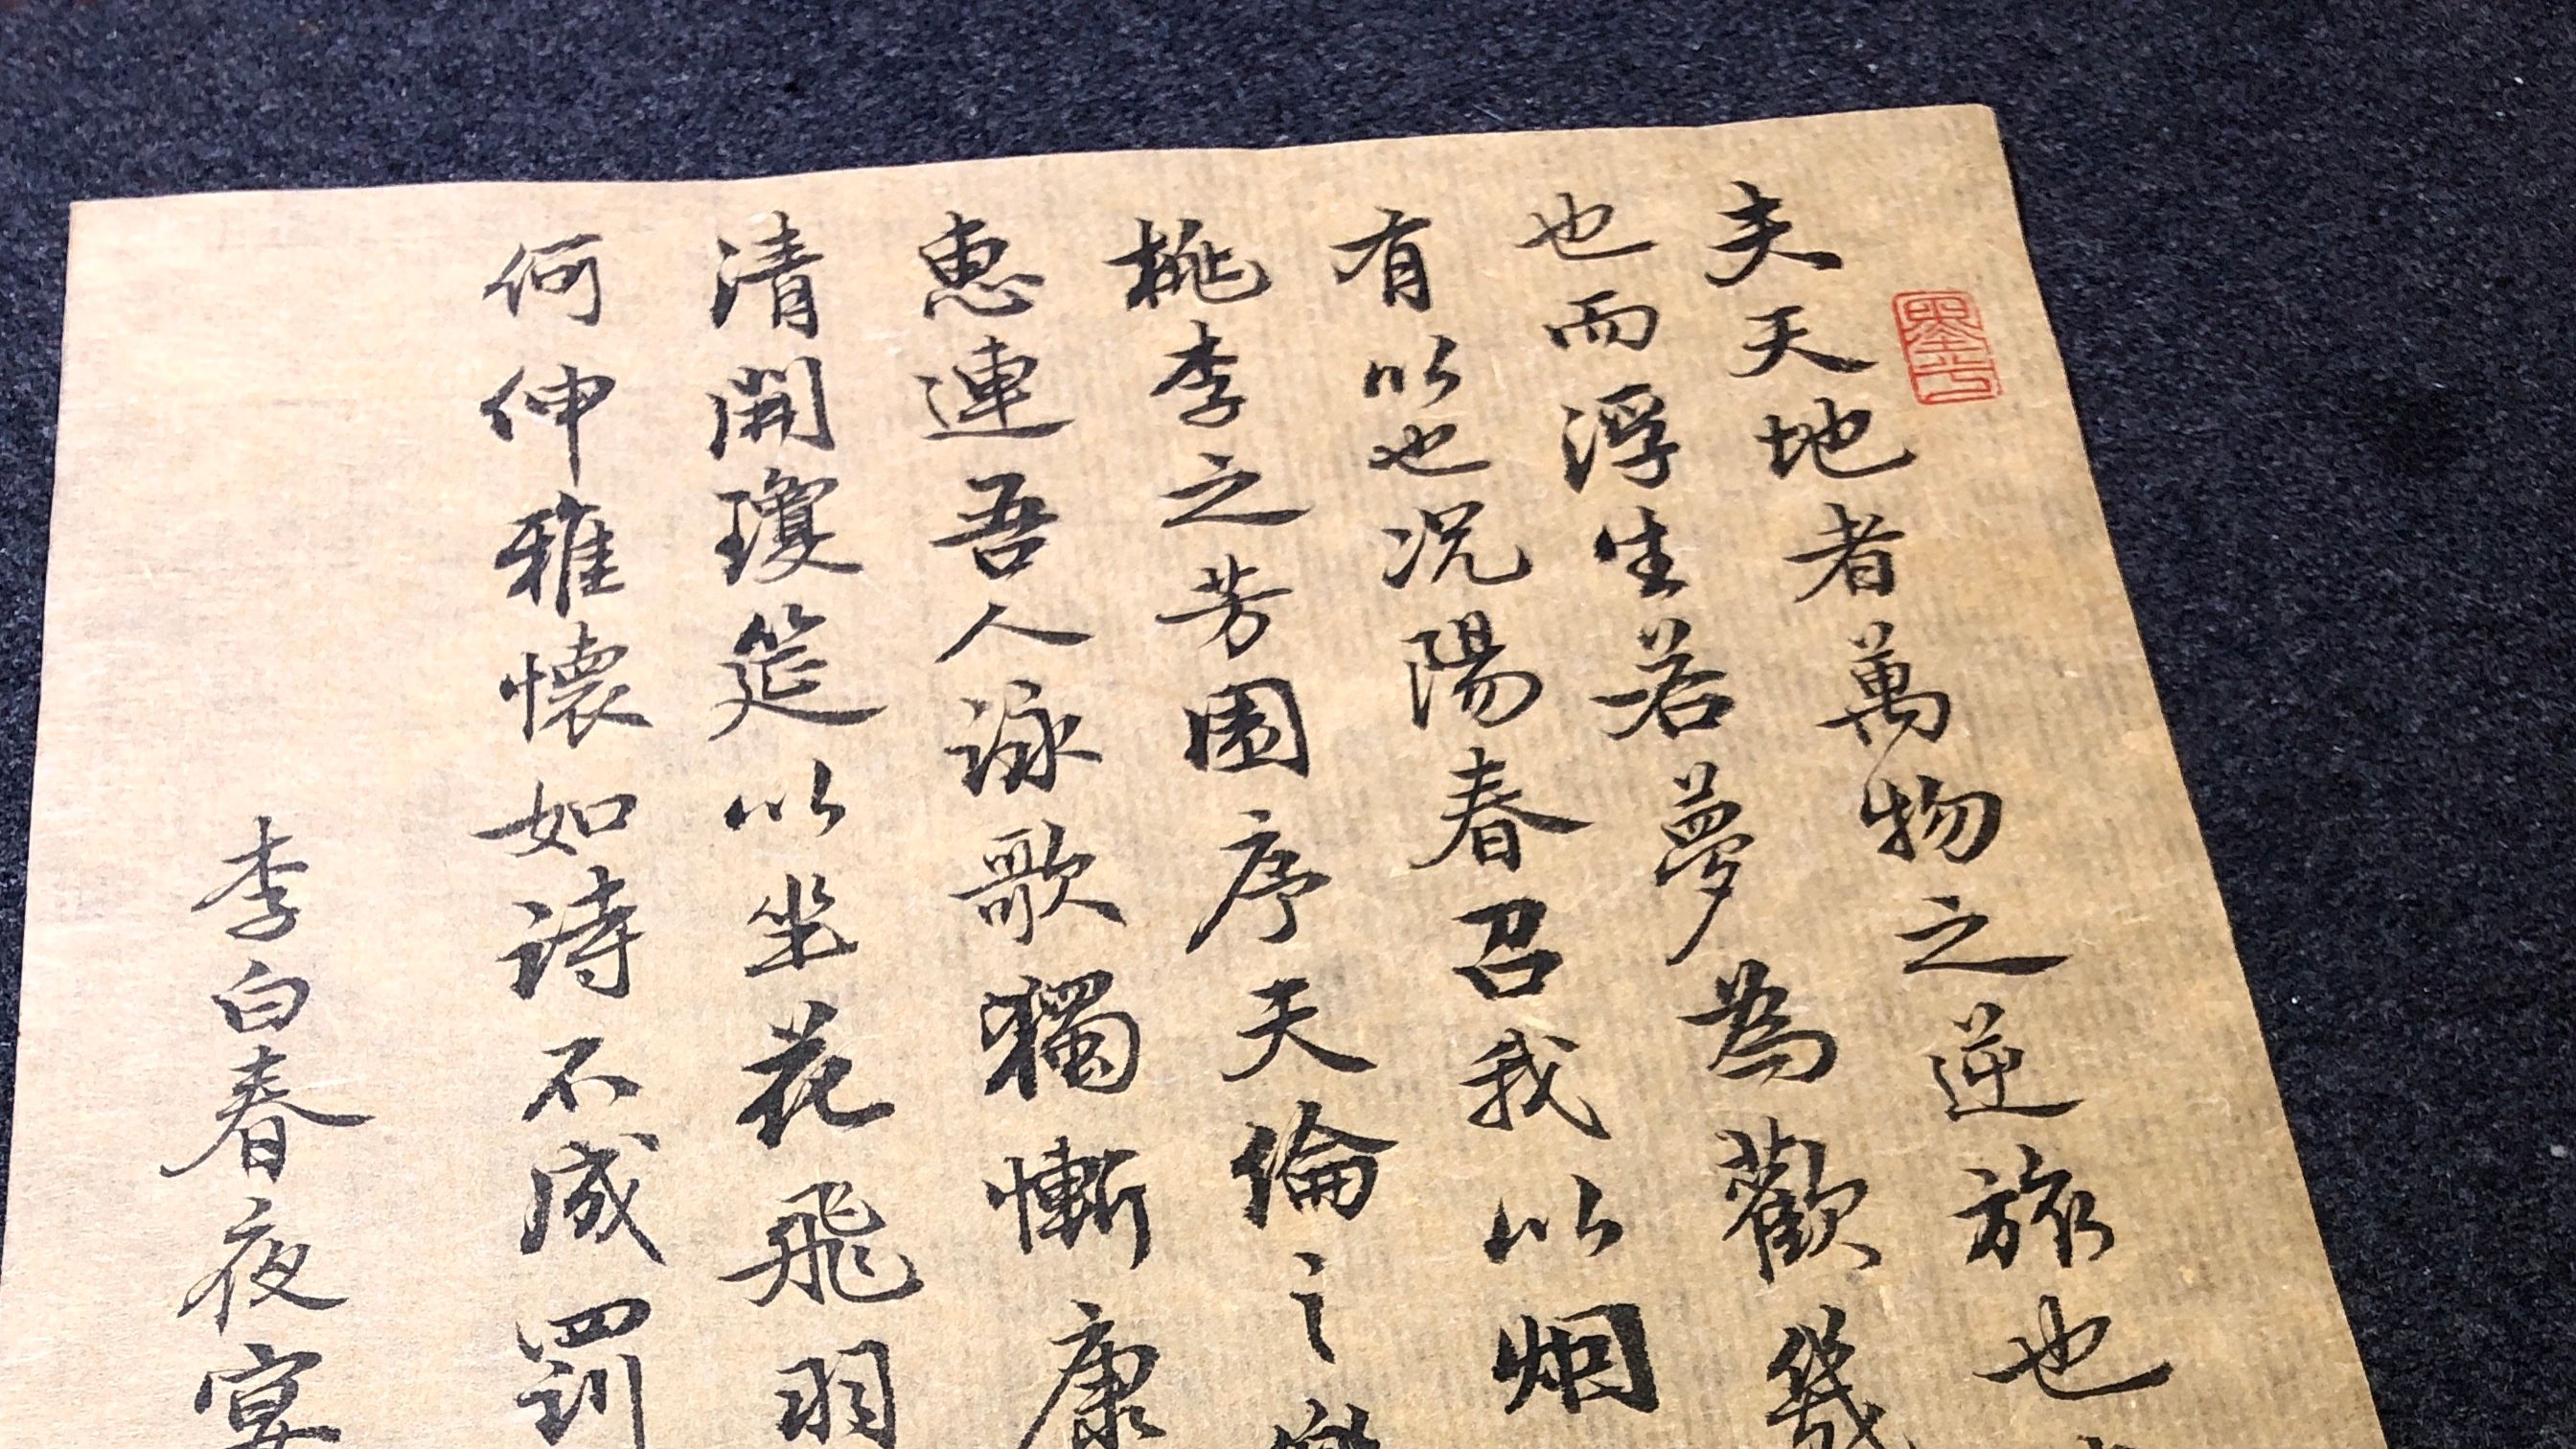 夫天地者萬物之逆旅也
也而浮生若夢為歡幾
有以也况陽春召我以烟
桃李之芳園序天倫之樂
惠連吾人詠歌獨慚康
清開瓊筵以坐花飛羽
何伸雅懷如詩不成罰
李白春夜宴